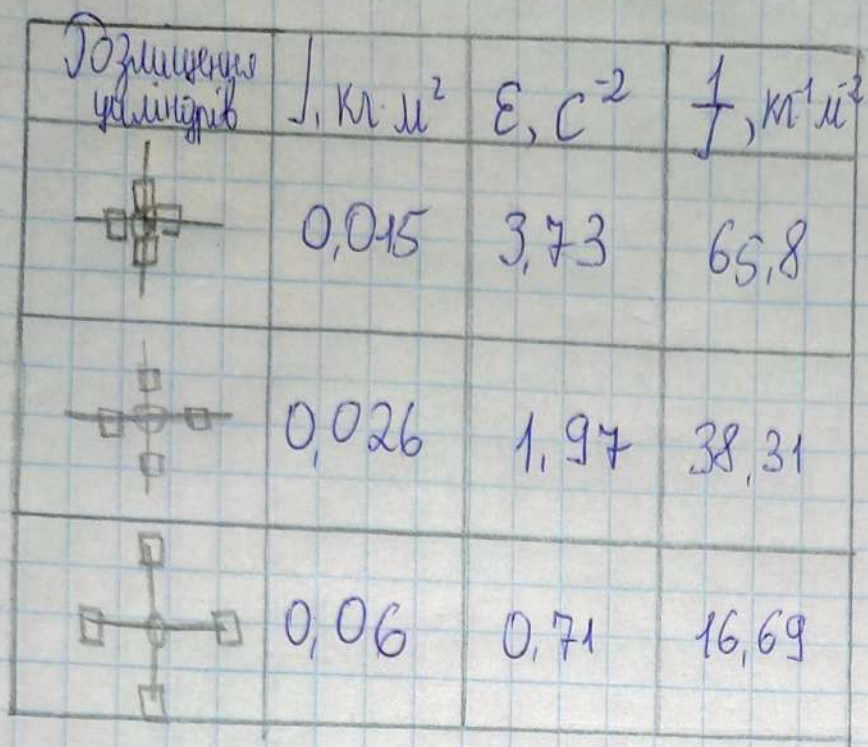 Розміщення
циліндрів
J, кг·м²
ε, с⁻²
1/J, кг⁻¹м⁻²
0,015
3,73
65,8
0,026
1,97
38,31
0,06
0,71
16,69